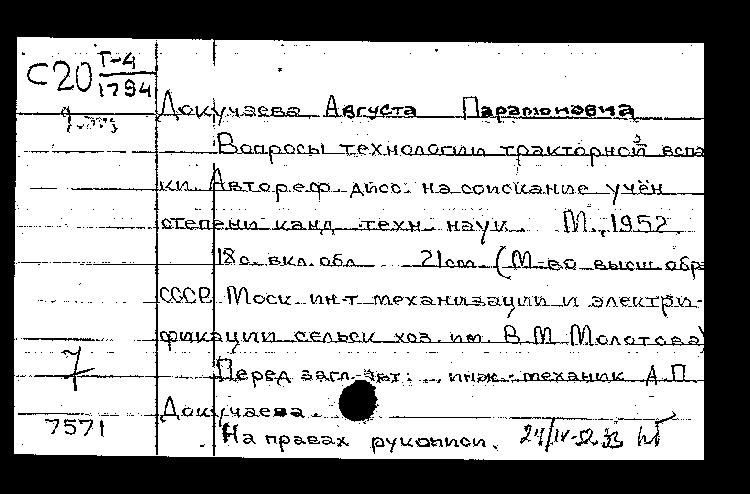 С20 Т-4
1794
Докучаева Августа Парамоновна
Вопросы технологии тракторной вспа
ки. Автореф. дисс. на соискание учён
степени канд. техн. наук. М., 1952.
18с. вкл. обл. 21см (М-во высш. обр
СССР. Моск. ин-т механизации и электри-
фикации сельск. хоз. им. В.М. Молотова)
Перед загл. авт.: инж.-механик А.П.
Докучаева.
7
7571
На правах рукописи. 24/IV-52